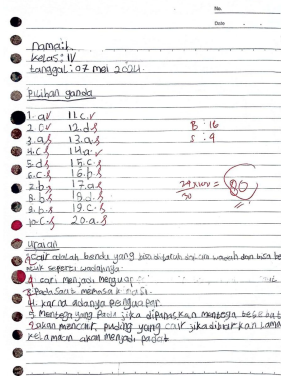 No.
Date
nama:
kelas: IV
tanggal: 07 mei 2024
pilihan ganda
1. a 11. c
2. c 12. d
3. a 13. a
4. c 14. a
5. d 15. c
6. c 16. b
7. b 17. a
8. b 18. d
9. b 19. c
10. c 20. a
B : 16
S : 4
= 80
50
uraian
cair adalah benda yang bisa di taruh dalam wadah dan bisa be
seperti wadahnya
2. cair menjadi menguap
3. Pada saat memasak nasi.
4. karna adanya penguapan.
5. mentega yang padat jika dipanaskan mentega tersebut
akan mencair, puding yang cair jika dibiarkan lama
kelamaan akan menjadi padat